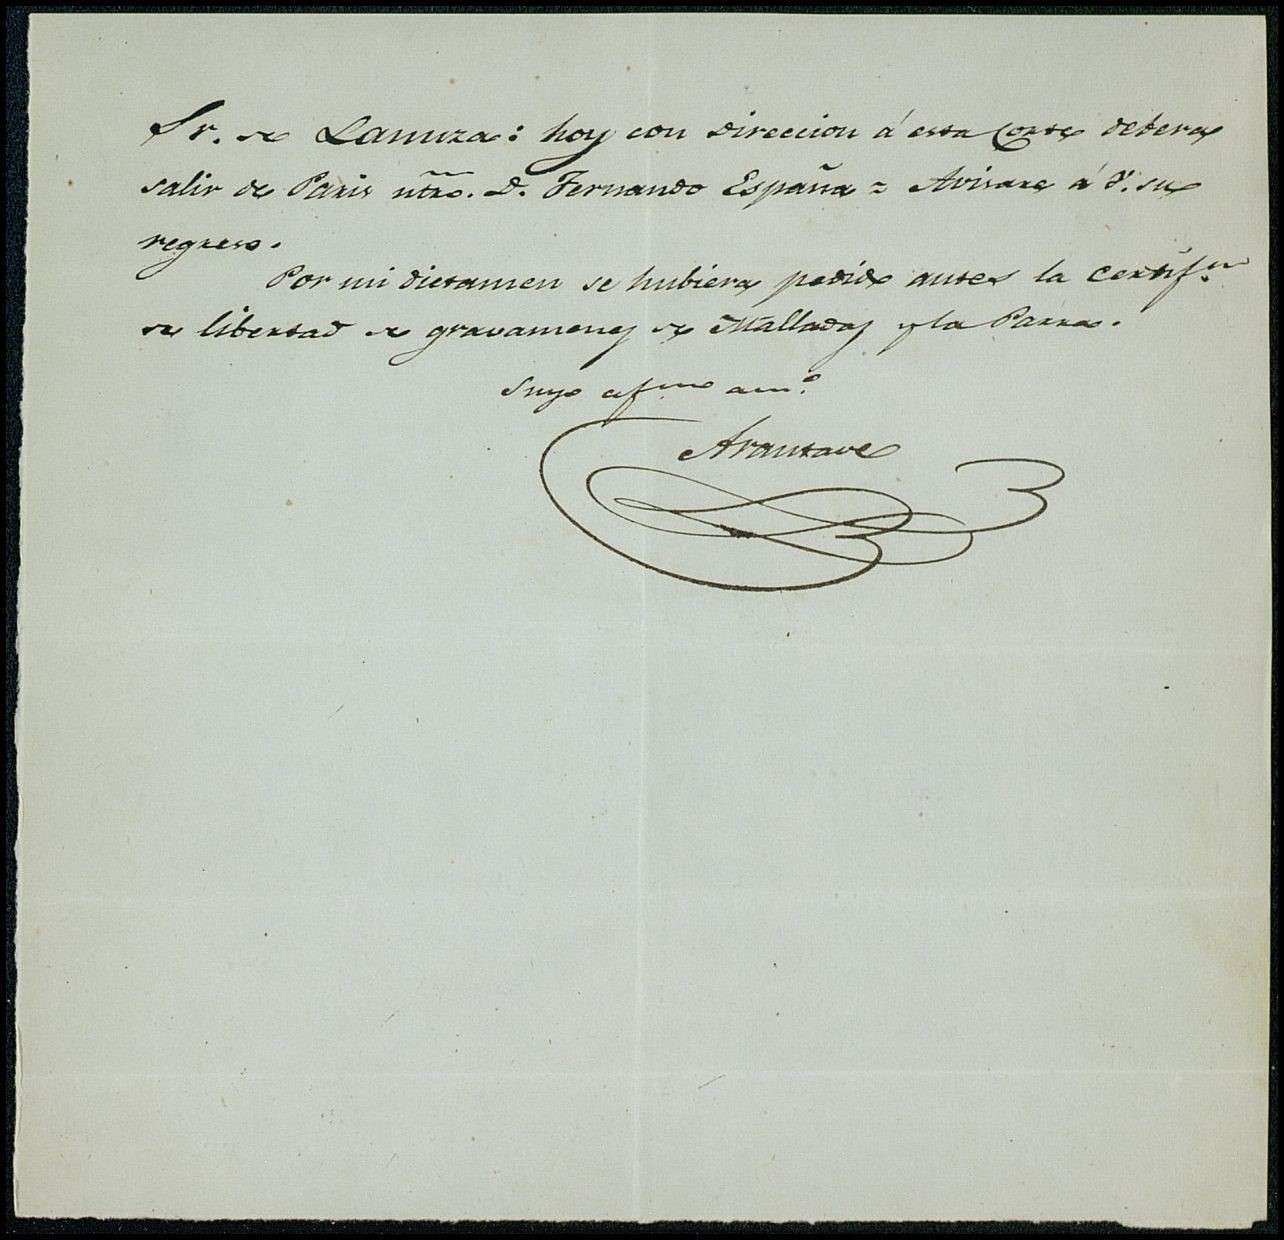 Sr. de Lanuza: hoy con direccion á esta Corte debera
salir de Paris ntro. D. Fernando España = Avisare á V. su
regreso.
Por mi dictamen se hubiera pedido antes la certif.on
de libertad de gravamenes de Malladas y la Parra.
Suyo afmo am.o
Arantave